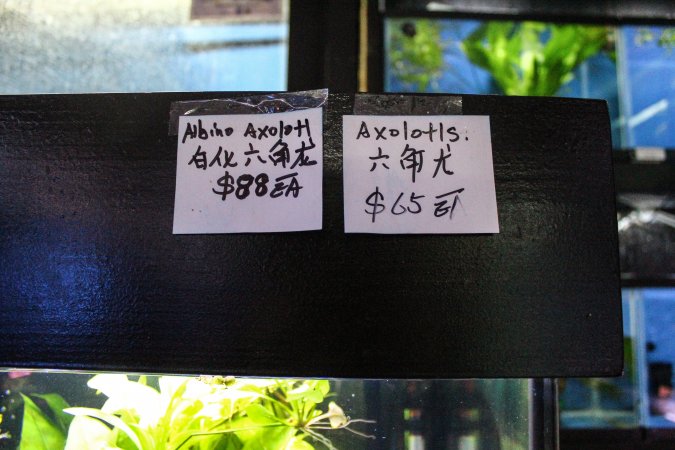 Albino Axolotl
白化六角龙
$88 EA
Axolotls.
六角龙
$65 EA